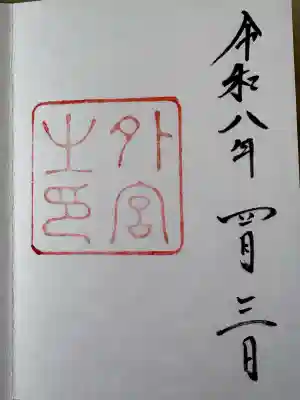 令和八年四月三日
外宮
之印